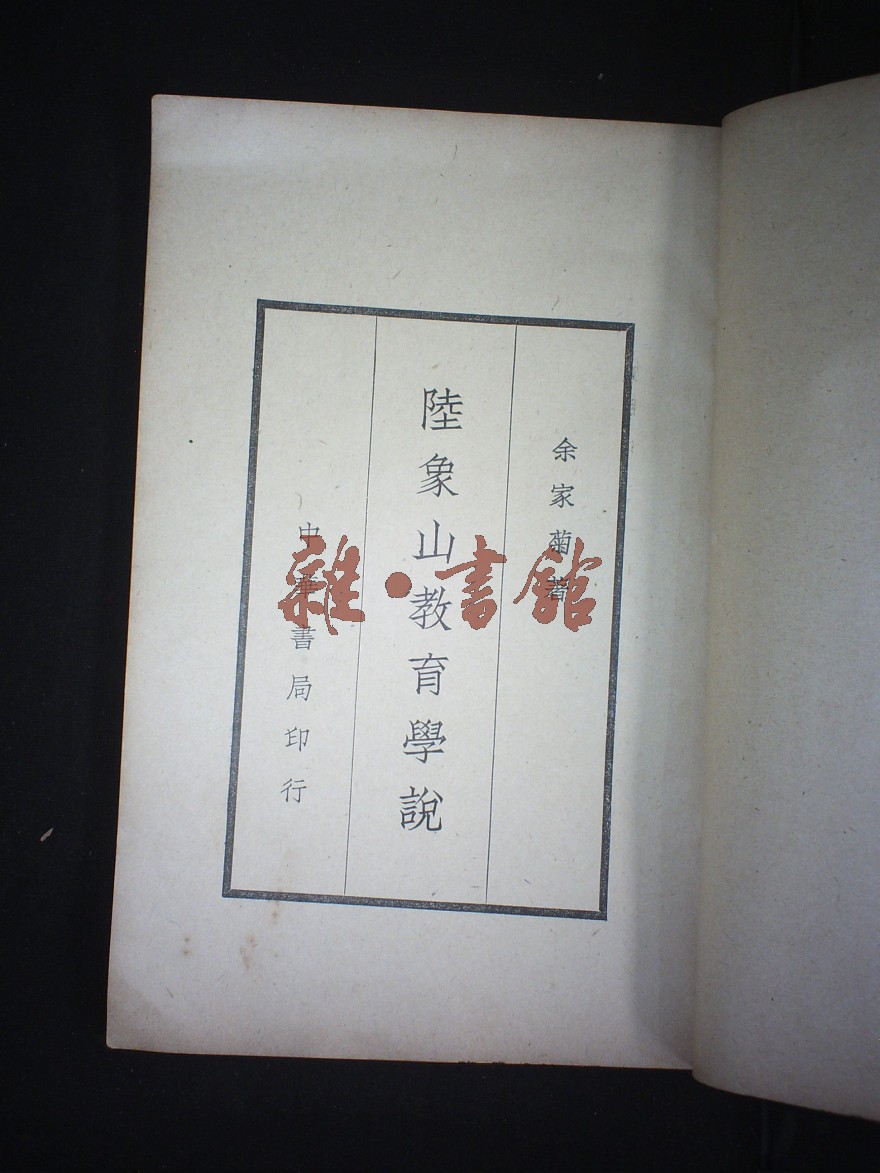 余家菊著
陸象山教育學說
中華書局印行
雜·書館